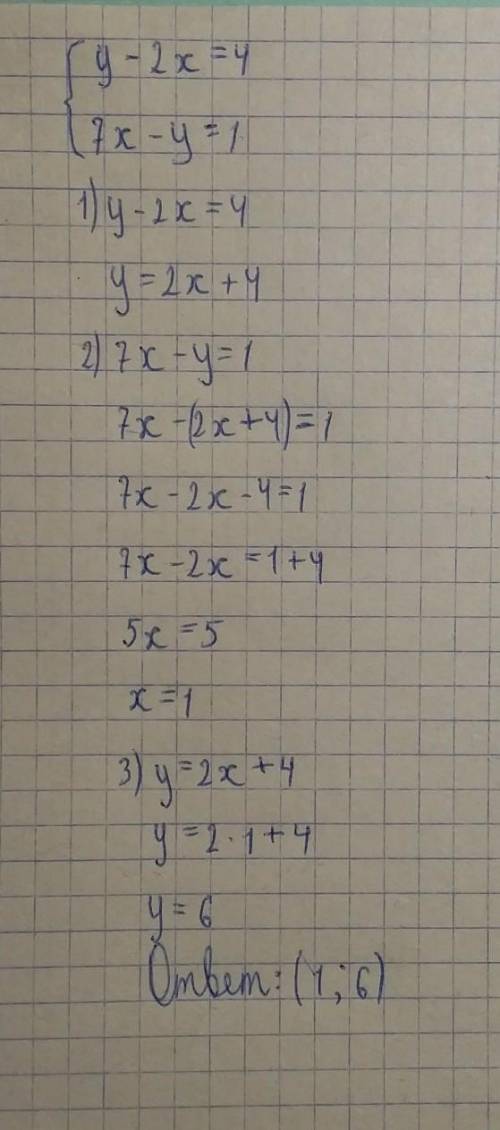 y - 2x = 4
7x - y = 1
1) y - 2x = 4
y = 2x + 4
2) 7x - y = 1
7x - (2x + 4) = 1
7x - 2x - 4 = 1
7x - 2x = 1 + 4
5x = 5
x = 1
3) y = 2x + 4
y = 2 · 1 + 4
y = 6
Ответ: (1; 6)